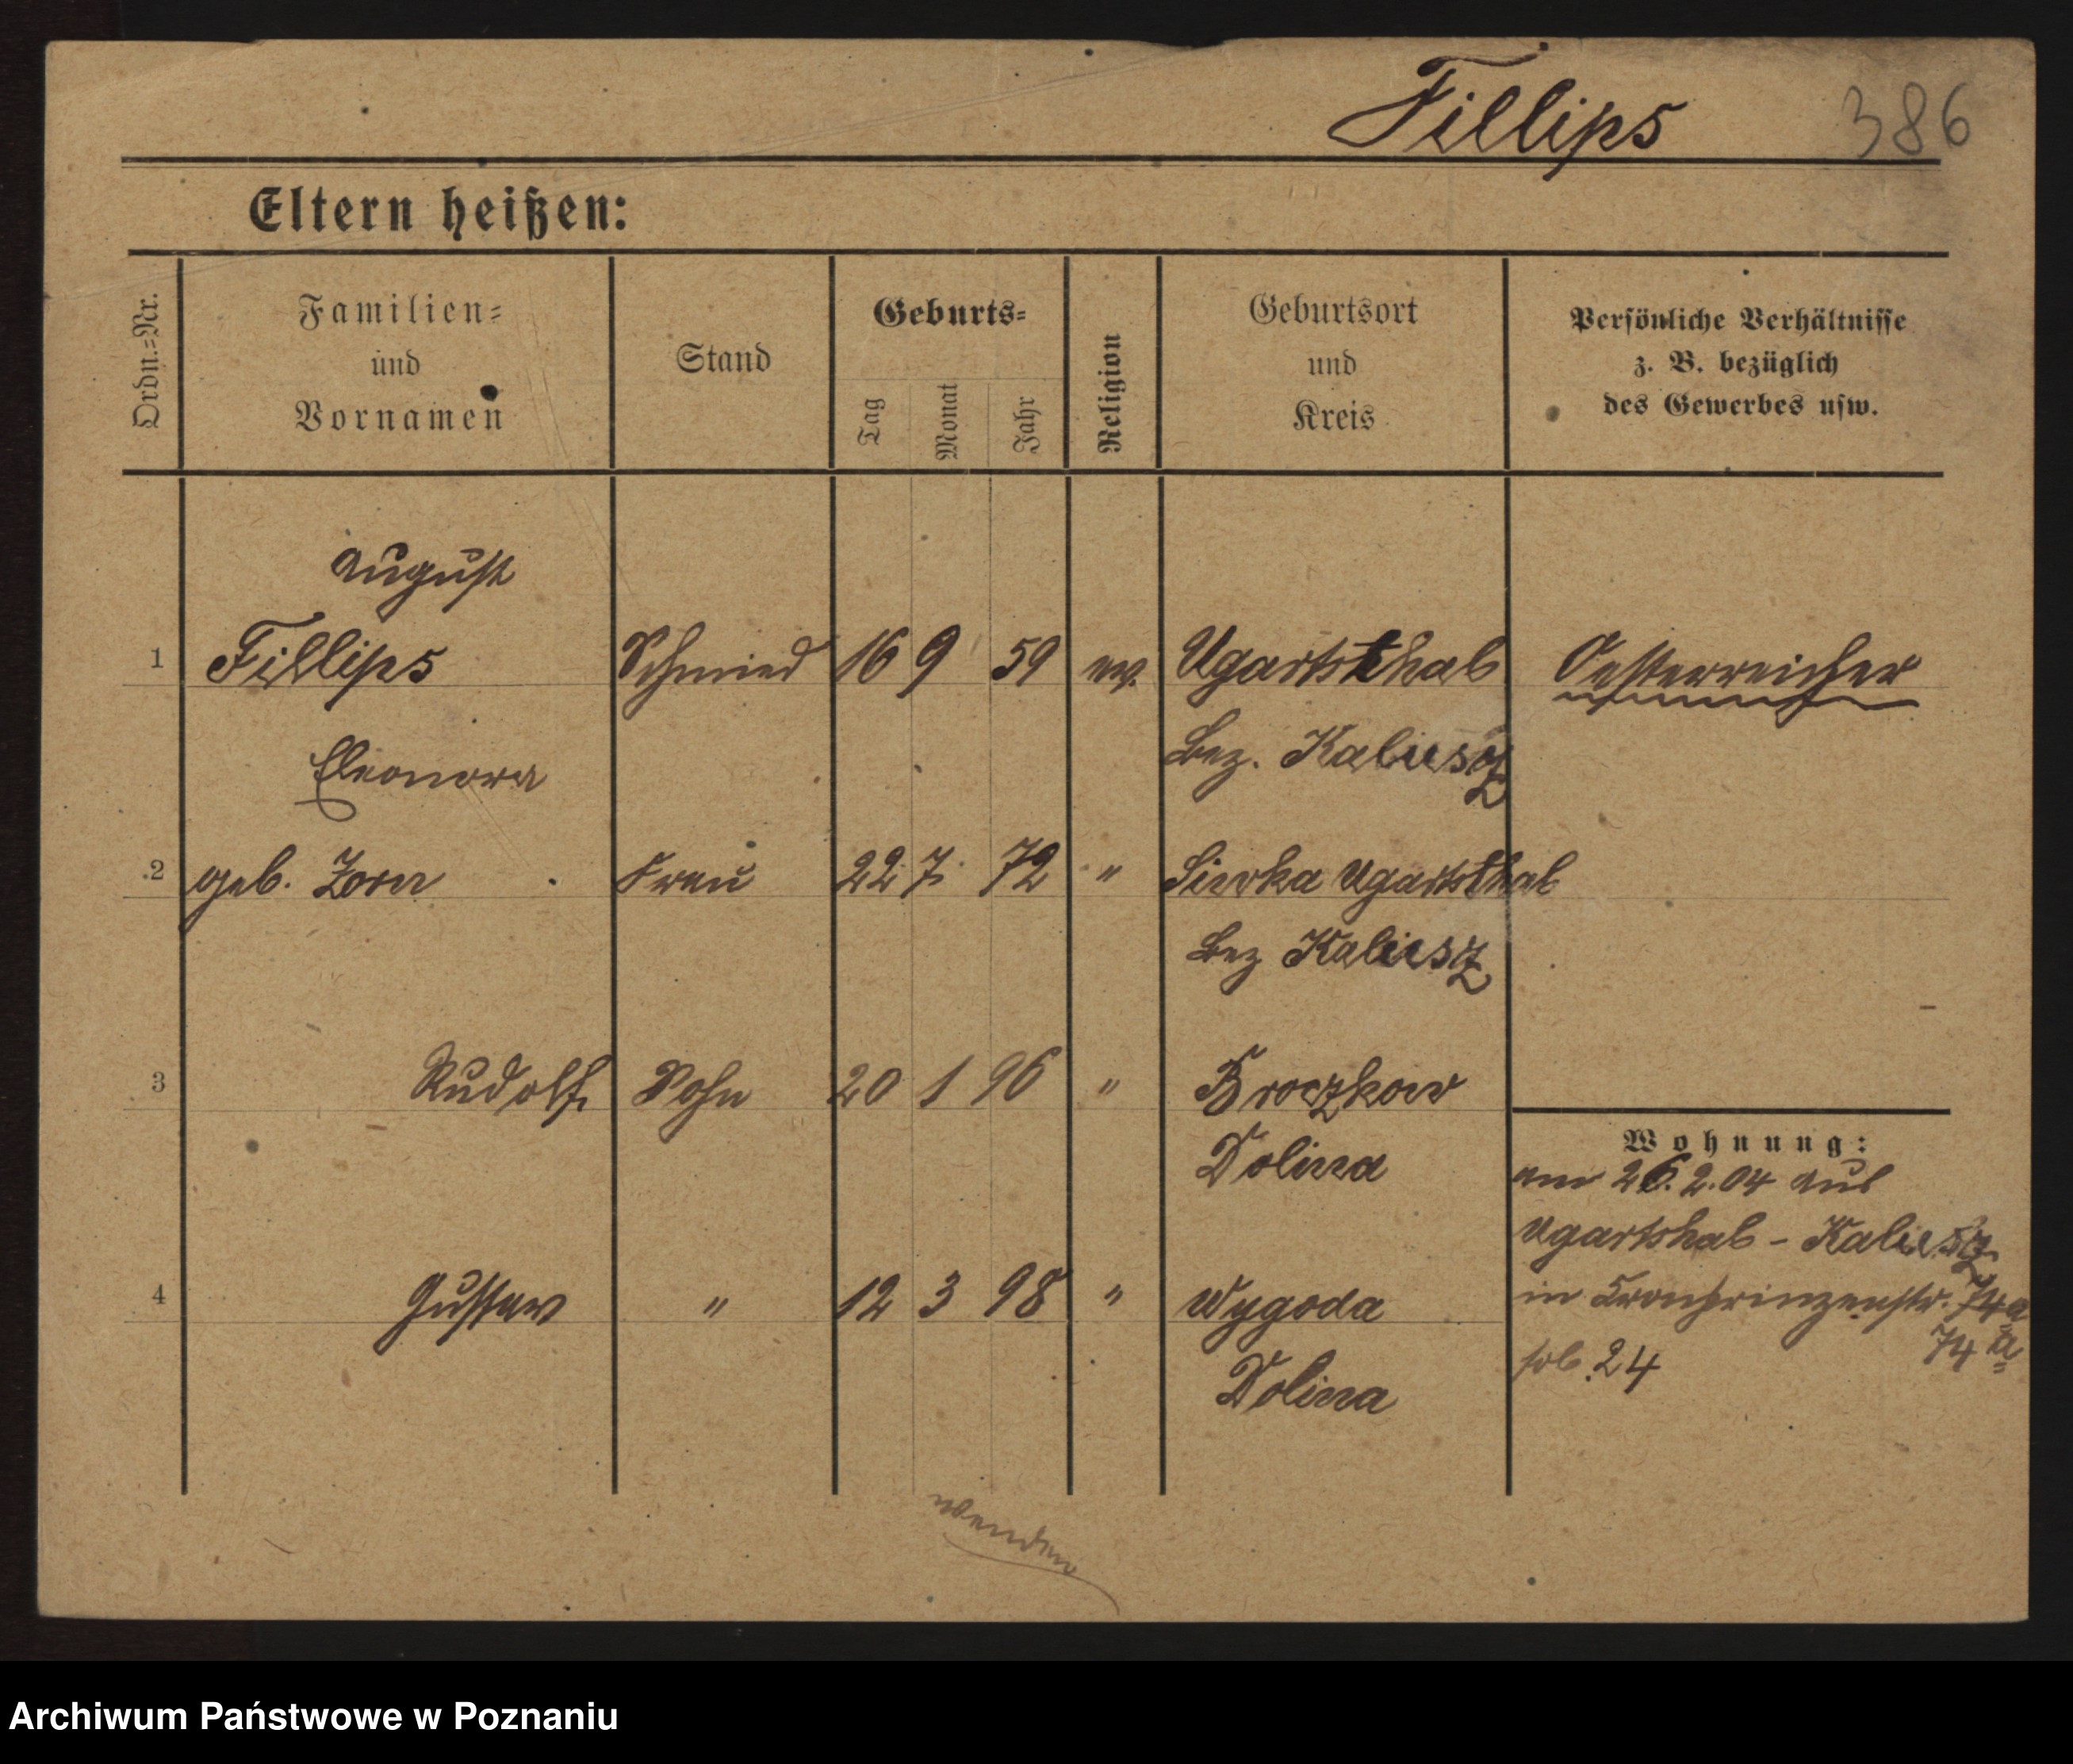 Fillips 386
Eltern heißen:
Ordn.-Nr.
Familien-
und
Vornamen
Stand
Geburts-
Tag
Monat
Jahr
Religion
Geburtsort
und
Kreis
Persönliche Verhältnisse
z. B. bezüglich
des Gewerbes usw.
August
1 Fillips Schmied 16 9 59 ev. Ugartsthal Oesterreicher
Bez. Kalusz
Eleonora
2 geb. Zorn Frau 22 7. 72 " Siwka Ugartsthal
Bez Kalusz
3 Rudolf Sohn 20 1 96 " Broczkow
Dolina
4 Gustav " 12 3 98 " Wygoda
Dolina
Wohnung:
am 26.2.04 aus
Ugartshal - Kalusz
in Kronprinzenstr. 74a
74a
24
wenden
Archiwum Państwowe w Poznaniu